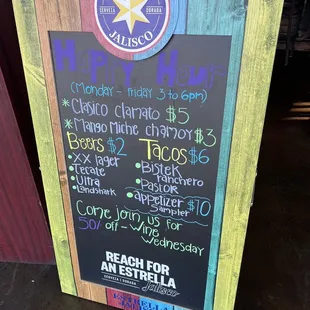 CERVEZA DORADA
JALISCO
Happy Hour
(Monday - friday 3 to 6pm)
*Clasico clamato $5
*Mango Miche chamoy $3
Beers $2 Tacos $6
• XX lager • Bistek ranchero
• Tecate • Pastor
• Ultra • appetizer sampler $10
• Landshark
Come join us for
50% off - Wine
Wednesday
REACH FOR
AN ESTRELLA
CERVEZA DORADA Jalisco
ESTRELLA